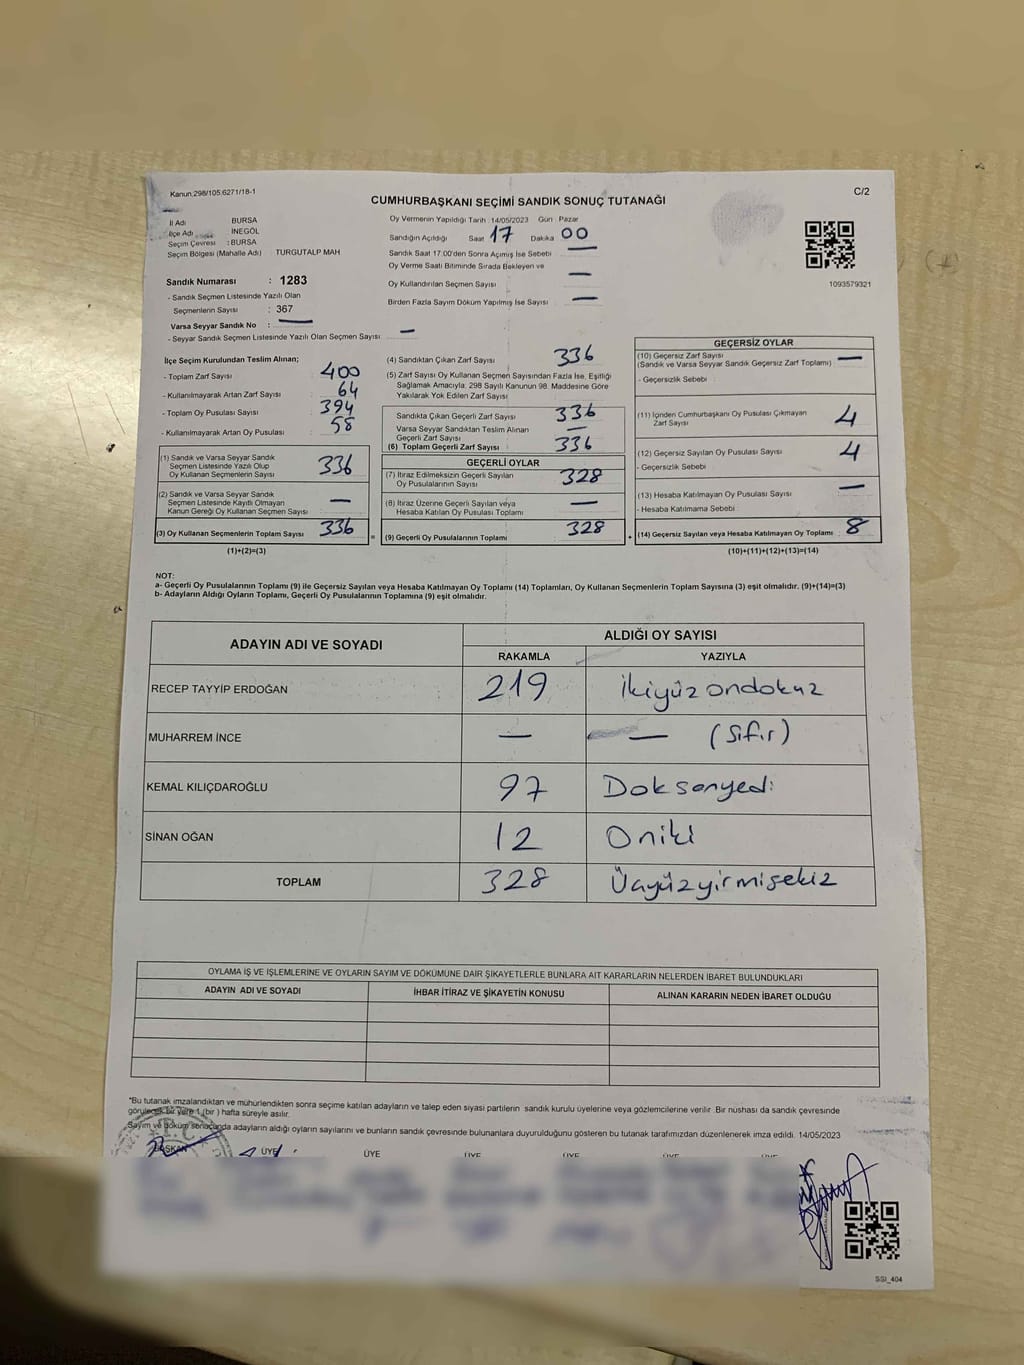 Kanun.298/105.6271/18-1
C/2
CUMHURBAŞKANI SEÇİMİ SANDIK SONUÇ TUTANAĞI
İl Adı BURSA
İlçe Adı İNEGÖL
Seçim Çevresi : BURSA
Seçim Bölgesi (Mahalle Adı) TURGUTALP MAH
Sandık Numarası : 1283
- Sandık Seçmen Listesinde Yazılı Olan
Seçmenlerin Sayısı : 367
Varsa Seyyar Sandık No : —
- Seyyar Sandık Seçmen Listesinde Yazılı Olan Seçmen Sayısı —
Oy Vermenin Yapıldığı Tarih : 14/05/2023 Gün : Pazar
Sandığın Açıldığı Saat 17 Dakika 00
Sandık Saat 17.00'den Sonra Açımış İse Sebebi —
Oy Verme Saati Bitiminde Sırada Bekleyen ve
Oy Kullandırılan Seçmen Sayısı —
Birden Fazla Sayım Döküm Yapılmış İse Sayısı —
1093579321
İlçe Seçim Kurulundan Teslim Alınan;
- Toplam Zarf Sayısı 400
- Kullanılmayarak Artan Zarf Sayısı 64
- Toplam Oy Pusulası Sayısı 394
- Kullanılmayarak Artan Oy Pusulası 58
(1) Sandık ve Varsa Seyyar Sandık
Seçmen Listesinde Yazılı Olup
Oy Kullanan Seçmenlerin Sayısı 336
(2) Sandık ve Varsa Seyyar Sandık
Seçmen Listesinde Kayıtlı Olmayan
Kanun Gereği Oy Kullanan Seçmen Sayısı —
(3) Oy Kullanan Seçmenlerin Toplam Sayısı 336
(1)+(2)=(3)
(4) Sandıktan Çıkan Zarf Sayısı 336
(5) Zarf Sayısı Oy Kullanan Seçmen Sayısından Fazla İse, Eşitliği
Sağlamak Amacıyla, 298 Sayılı Kanunun 98. Maddesine Göre
Yakılarak Yok Edilen Zarf Sayısı
Sandıkta Çıkan Geçerli Zarf Sayısı 336
Varsa Seyyar Sandıktan Teslim Alınan
Geçerli Zarf Sayısı —
(6) Toplam Geçerli Zarf Sayısı 336
GEÇERLİ OYLAR
(7) İtiraz Edilmeksizin Geçerli Sayılan
Oy Pusulalarının Sayısı 328
(8) İtiraz Üzerine Geçerli Sayılan veya
Hesaba Katılan Oy Pusulası Toplamı —
= (9) Geçerli Oy Pusulalarının Toplamı 328
GEÇERSİZ OYLAR
(10) Geçersiz Zarf Sayısı
(Sandık ve Varsa Seyyar Sandık Geçersiz Zarf Toplamı) —
- Geçersizlik Sebebi
(11) İçinden Cumhurbaşkanı Oy Pusulası Çıkmayan
Zarf Sayısı 4
(12) Geçersiz Sayılan Oy Pusulası Sayısı 4
- Geçersizlik Sebebi
(13) Hesaba Katılmayan Oy Pusulası Sayısı —
- Hesaba Katılmama Sebebi
+ (14) Geçersiz Sayılan veya Hesaba Katılmayan Oy Toplamı 8
(10)+(11)+(12)+(13)=(14)
NOT:
a- Geçerli Oy Pusulalarının Toplamı (9) ile Geçersiz Sayılan veya Hesaba Katılmayan Oy Toplamı (14) Toplamları, Oy Kullanan Seçmenlerin Toplam Sayısına (3) eşit olmalıdır. (9)+(14)=(3)
b- Adayların Aldığı Oyların Toplamı, Geçerli Oy Pusulalarının Toplamına (9) eşit olmalıdır.
ADAYIN ADI VE SOYADI ALDIĞI OY SAYISI
RAKAMLA YAZIYLA
RECEP TAYYİP ERDOĞAN 219 İkiyüz ondokuz
MUHARREM İNCE — — (Sıfır)
KEMAL KILIÇDAROĞLU 97 Doksanyedi
SİNAN OĞAN 12 Oniki
TOPLAM 328 Üçyüzyirmisekiz
OYLAMA İŞ VE İŞLEMLERİNE VE OYLARIN SAYIM VE DÖKÜMÜNE DAİR ŞİKAYETLERLE BUNLARA AİT KARARLARIN NELERDEN İBARET BULUNDUKLARI
ADAYIN ADI VE SOYADI İHBAR İTİRAZ VE ŞİKAYETİN KONUSU ALINAN KARARIN NEDEN İBARET OLDUĞU
*Bu tutanak imzalandıktan ve mühürlendikten sonra seçime katılan adayların ve talep eden siyasi partilerin sandık kurulu üyelerine veya gözlemcilerine verilir. Bir nüshası da sandık çevresinde
görülecek bir yere 1 (bir ) hafta süreyle asılır.
Sayım ve döküm sonucunda adayların aldığı oyların sayılarını ve bunların sandık çevresinde bulunanlara duyurulduğunu gösteren bu tutanak tarafımızdan düzenlenerek imza edildi. 14/05/2023
BAŞKAN ÜYE ÜYE ÜYE ÜYE ÜYE ÜYE
SSI_404